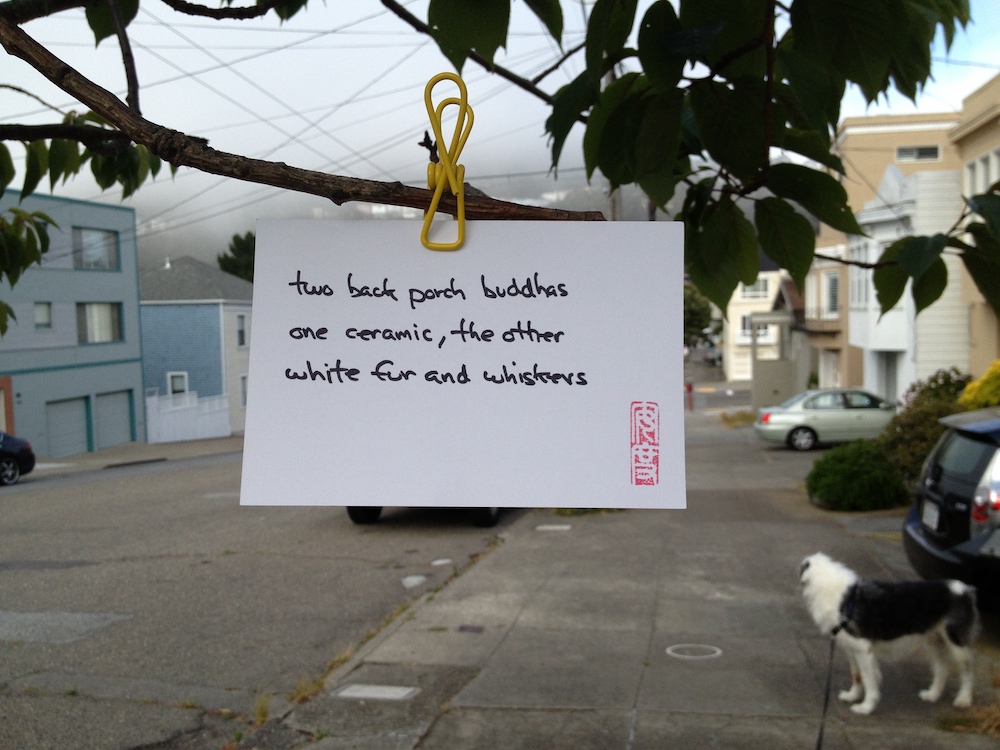 two back porch buddhas
one ceramic, the other
white fur and whiskers